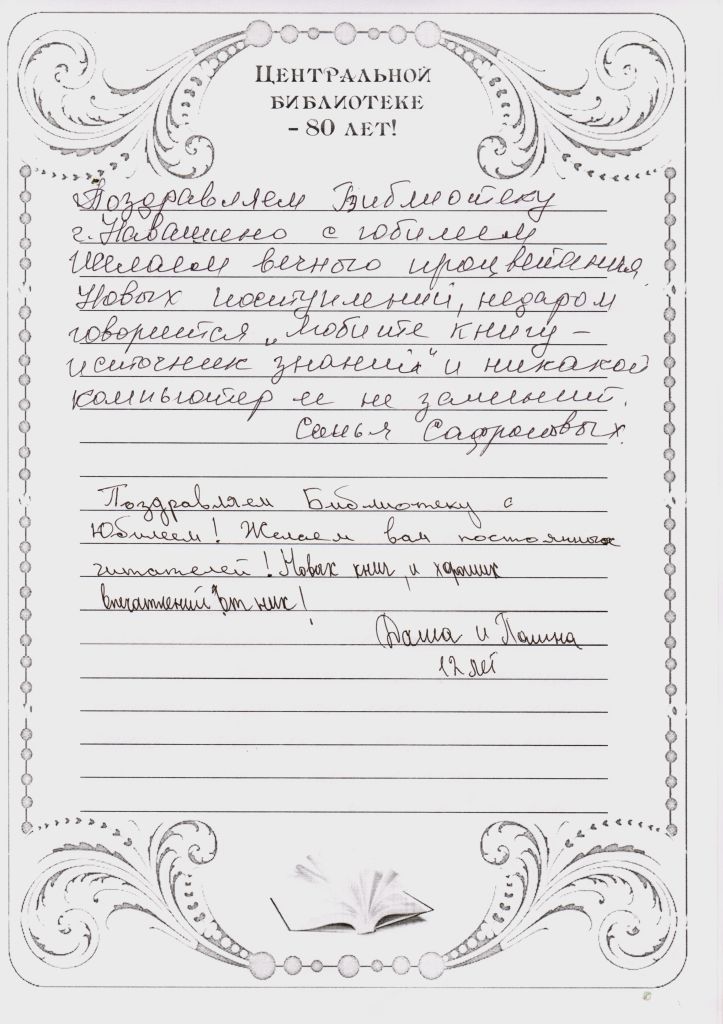 Центральной
библиотеке
- 80 лет!
Поздравляем Библиотеку
г. Навашино с юбилеем
Желаем вечного процветания
Новых поступлений, недаром
говорится „любите книгу –
источник знаний" и никакой
компьютер ее не заменит.
Семья Сафроновых.
Поздравляем Библиотеку с
Юбилеем! Желаем вам постоянных
читателей! Новых книг, и хороших
впечатлений от них!
Даша и Полина
12 лет